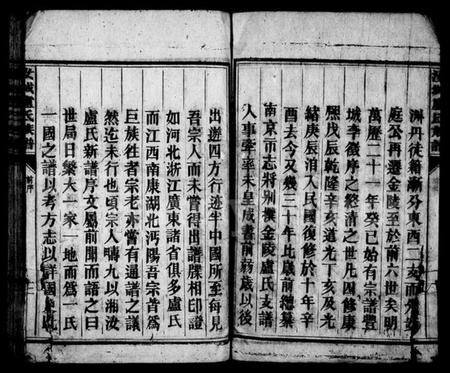 淵丹徒籍漸分東西二支而
庭公再遷金陵至於前六世矣明
萬曆二十一年癸巳始有宗譜豐
城李徵序之愍清之世凡四修康
熙戊辰乾隆辛亥道光丁亥及光
緒庚辰洎入民國復修於十年辛
酉去今又幾三十年比歲前總纂
南京市志將別撰金陵盧氏支譜
人事牽率未皇成書前歲以後
出遊四方行迹半中國所至每見
吾宗人而未嘗得出譜牒相印證
如河北浙江廣東諸省俱多盧氏
而江西南康湖北沔陽吾宗皆為
巨族往者宗老亦嘗有通譜之議
然迄未行也頃宗人晴九以湘汝
盧氏新譜序文屬前聞而語之曰
世局日繁大一家一地而為一氏
一國之譜以考方志以詳國